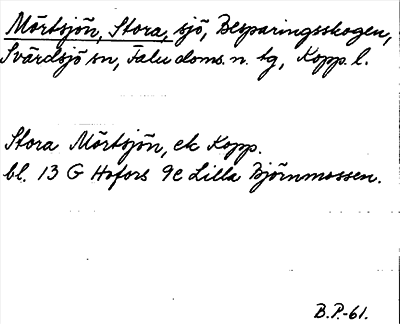 Mörtsjön, Stora, sjö, Besparingsskogen,
Svärdsjö sn, Falu doms. n. tg, Kopp. l.
Stora Mörtsjön, ek Kopp.
bl. 13 G Hofors 9c Lilla Björnmossen.
B.P.-61.